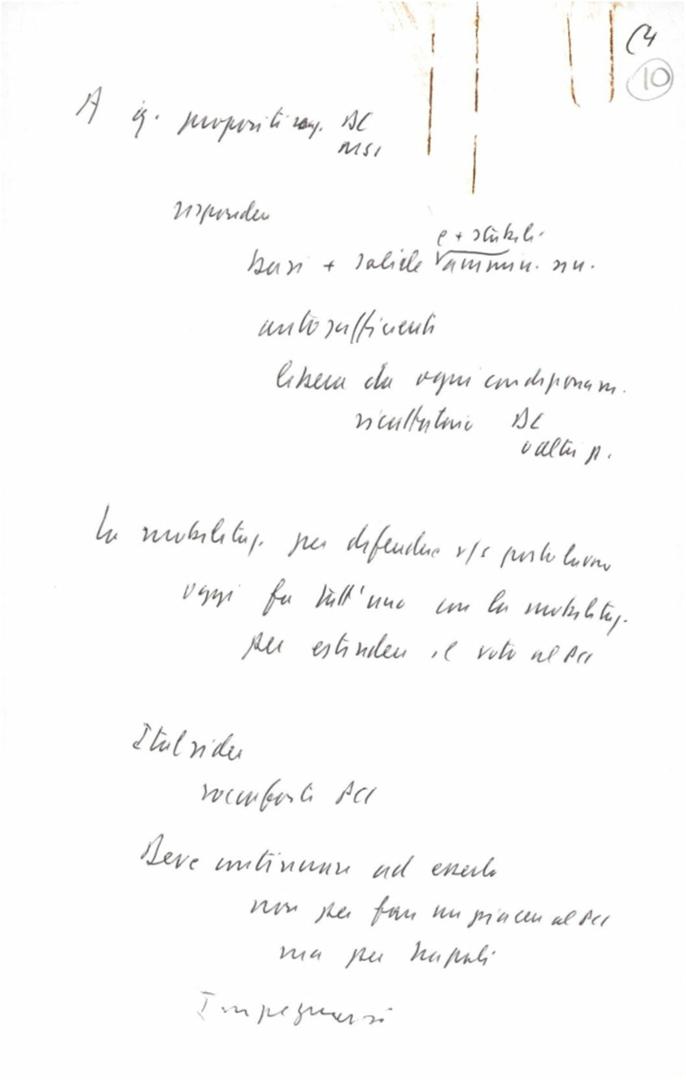 C4
10
A q. propositi reaz. DC
MSI
rispondere
basi + solide ammin. sin.
e + stabili
autosufficienti
libera da ogni condizionam.
ricattatorio DC
o altri p.
La mobilitaz. per difendere v/s posto lavoro
oggi fa tutt'uno con la mobilitaz.
per estendere il voto al PCI
Italsider
roccaforte PCI
Deve continuare ad esserlo
non per fare un piacere al PCI
ma per Napoli
Impegnarsi